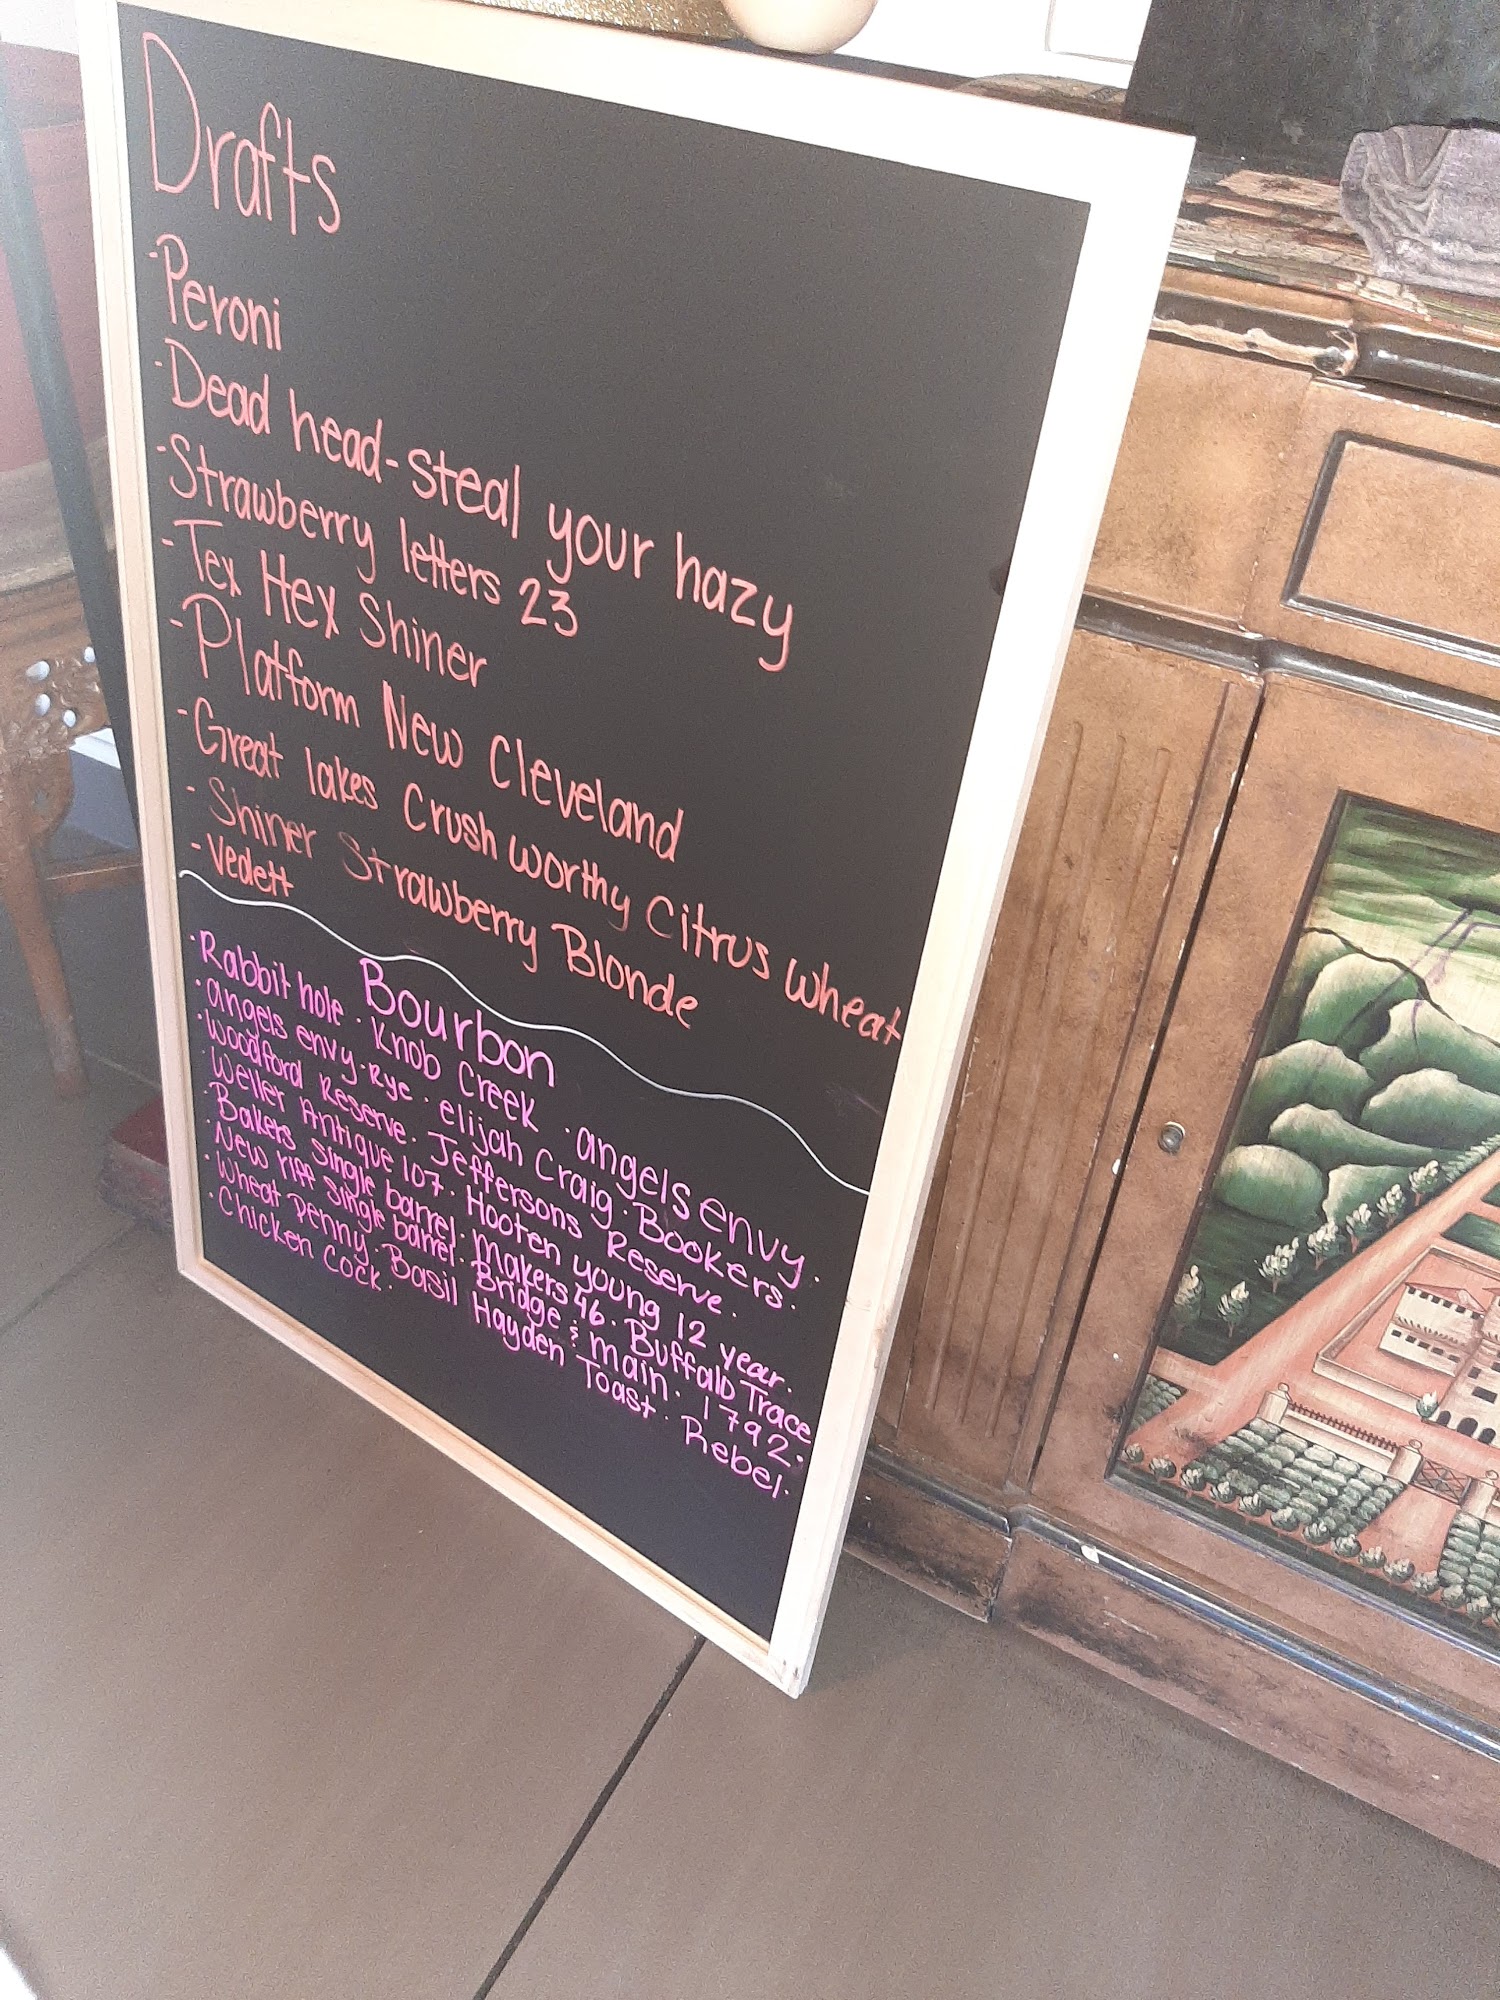 Drafts
- Peroni
- Dead head-steal your hazy
- Strawberry letters 23
- Tex Hex Shiner
- Platform New Cleveland
- Great lakes Crush worthy Citrus wheat
- Shiner Strawberry Blonde
- Vedett
Bourbon
· Rabbit hole · Knob Creek · angels envy ·
· angels envy · Rye · elijah Craig · Bookers ·
· Woodford Reserve · Jeffersons Reserve ·
· Weller Antique 107 · Hooten young 12 year ·
· Bakers single barrel · Makers 46 · Buffalo Trace
· New riff single barrel · Bridge & main · 1792 ·
· Wheat Penny · Basil Hayden Toast · Rebel ·
· Chicken Cock ·